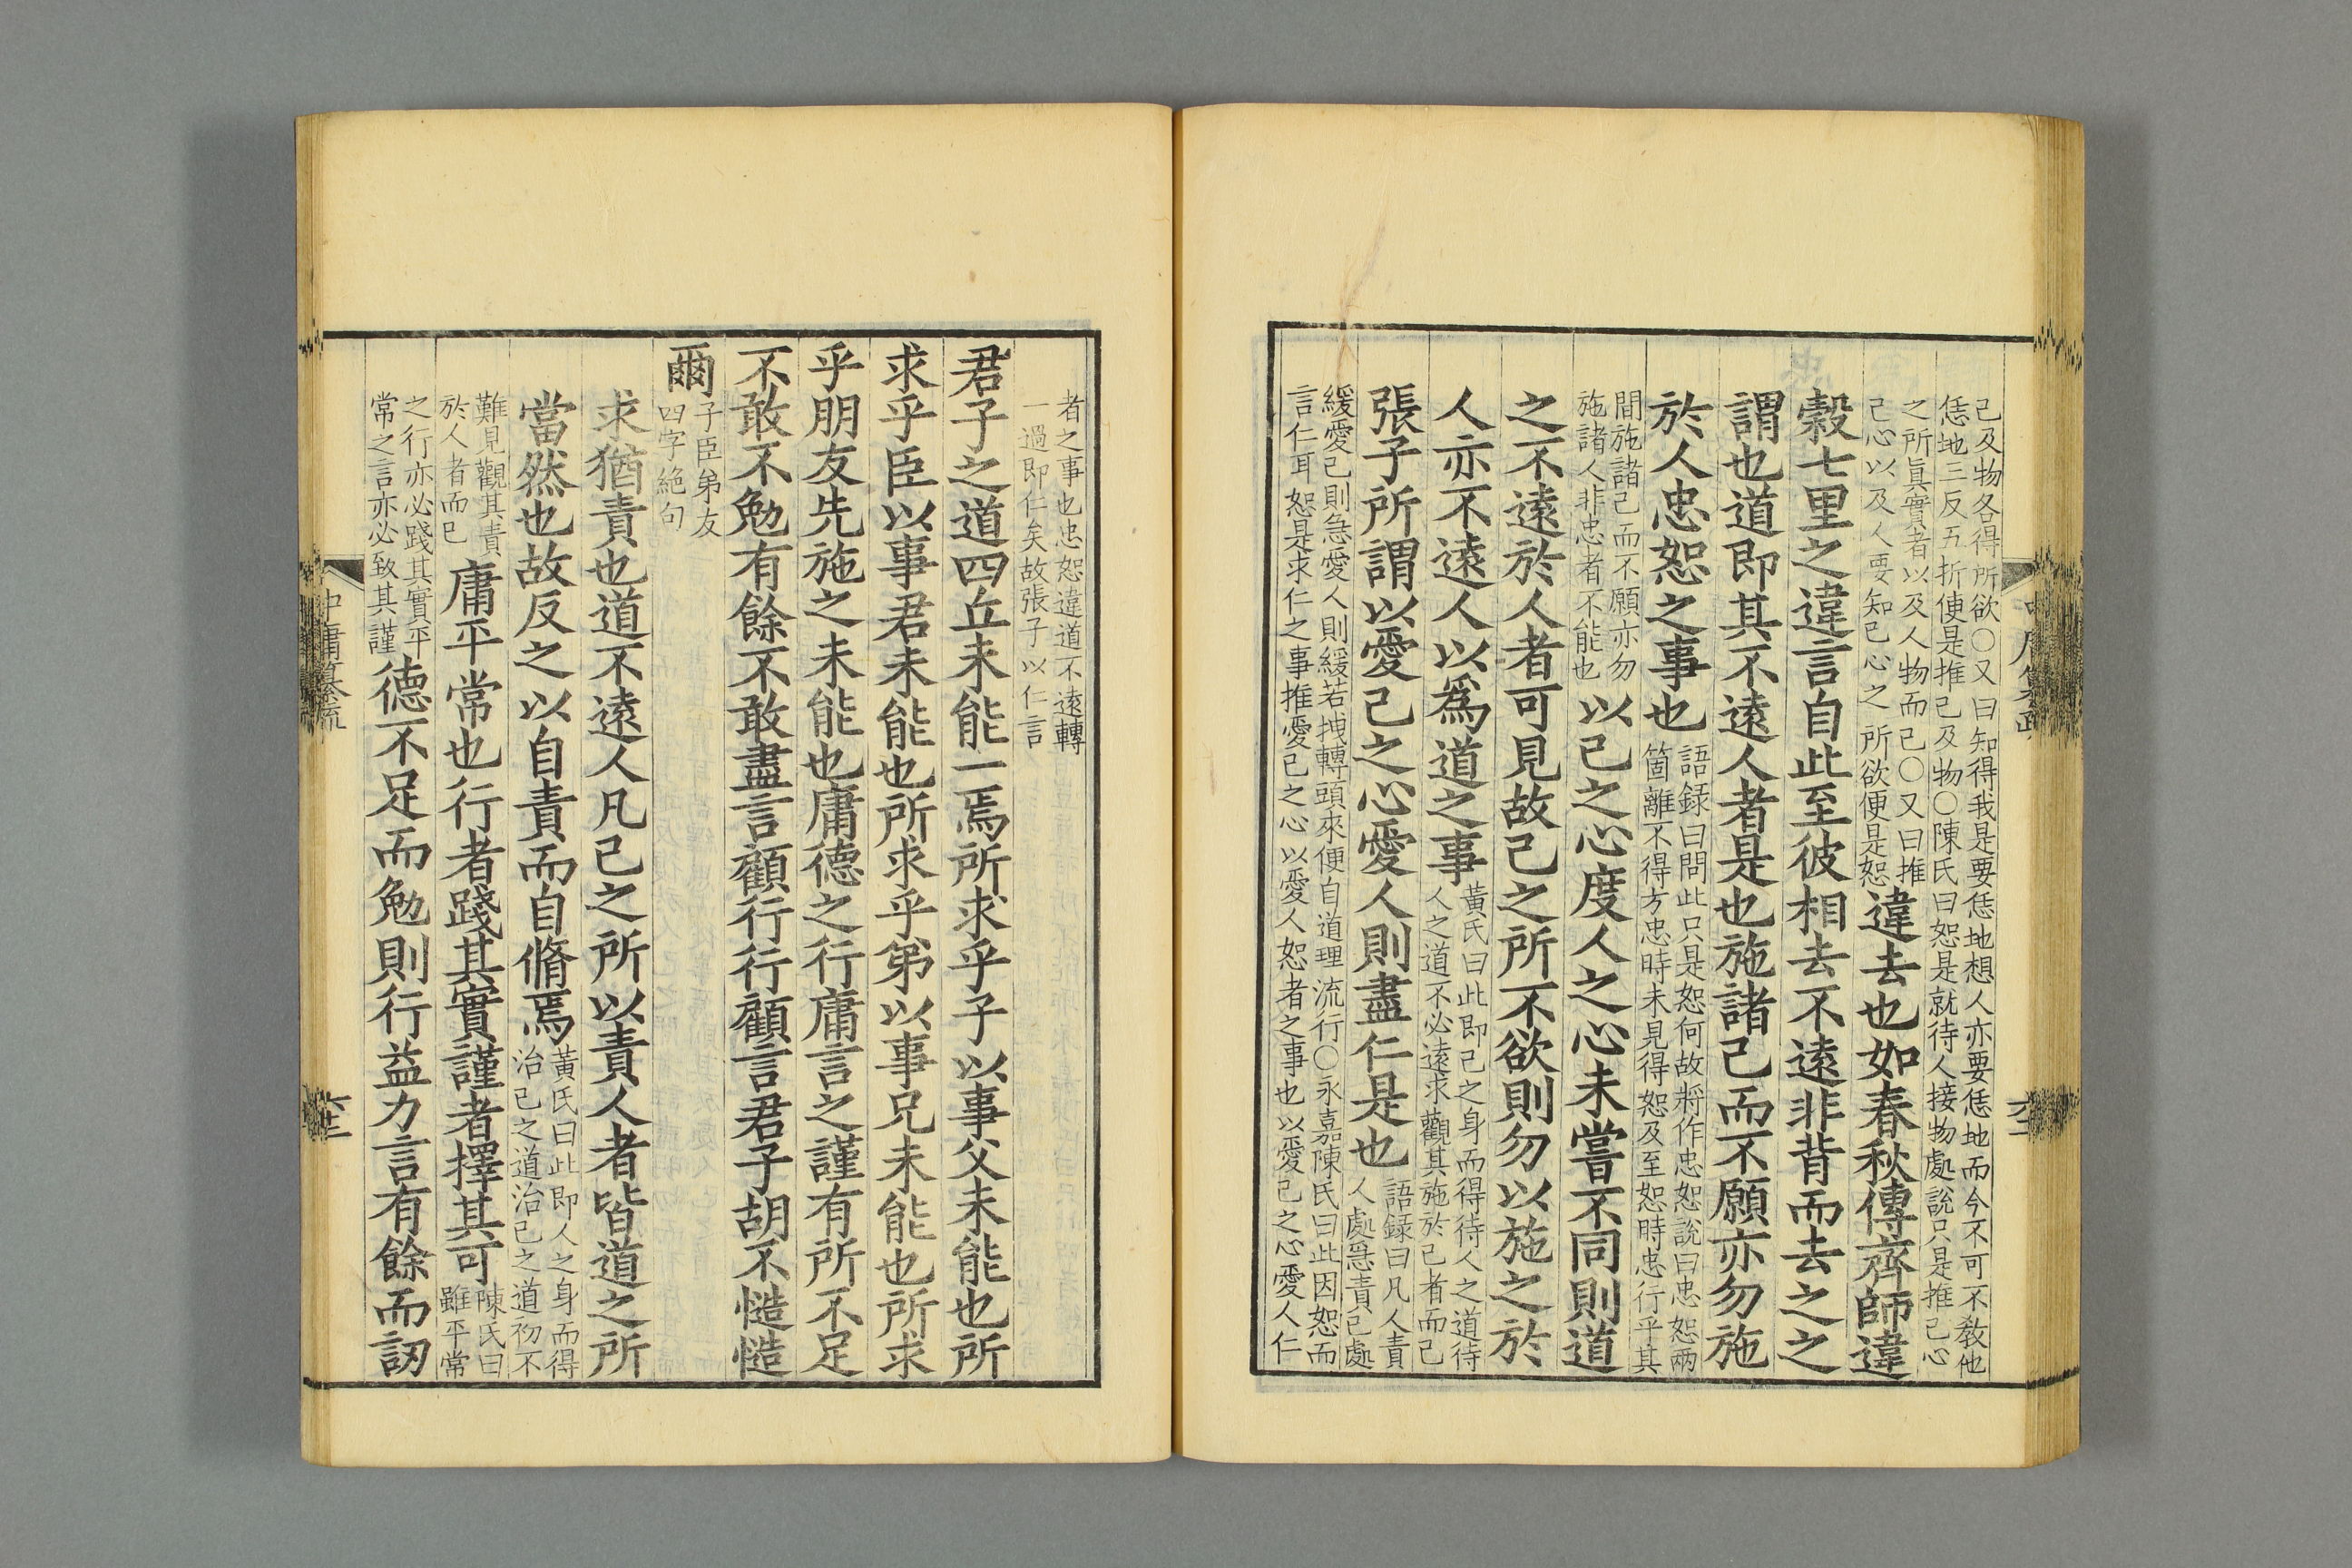 己及物各得所欲○又曰知得我是要恁地想人亦要恁地而今不可不敎他
恁地三反五折便是推己及物○陳氏曰恕是就待人接物處說只是推己心
之所眞實者以及人物而已○又曰推
己心以及人要知己心之所欲便是恕
違去也如春秋傳齊師違
穀七里之違言自此至彼相去不遠非背而去之之
謂也道即其不遠人者是也施諸己而不願亦勿施
於人忠恕之事也
語録曰問此只是恕何故將作忠恕說曰忠恕兩
箇離不得方忠時未見得恕及至恕時忠行乎其
間施諸己而不願亦勿
施諸人非忠者不能也
以己之心度人之心未嘗不同則道
之不遠於人者可見故己之所不欲則勿以施之於
人亦不遠人以爲道之事
黃氏曰此即己之身而得待人之道待
人之道不必遠求觀其施於己者而已
張子所謂以愛己之心愛人則盡仁是也
語録曰凡人責
人處急責己處
緩愛己則急愛人則緩若拽轉頭來便自道理流行○永嘉陳氏曰此因恕而
言仁耳恕是求仁之事推愛己之心以愛人恕者之事也以愛己之心愛人仁
者之事也忠恕違道不遠轉
一過即仁矣故張子以仁言
君子之道四丘未能一焉所求乎子以事父未能也所
求乎臣以事君未能也所求乎弟以事兄未能也所求
乎朋友先施之未能也庸德之行庸言之謹有所不足
不敢不勉有餘不敢盡言顧行行顧言君子胡不慥慥
爾
子臣弟友
四字絶句
求猶責也道不遠人凡己之所以責人者皆道之所
當然也故反之以自責而自脩焉
黃氏曰此即人之身而得
治己之道治己之道初不
難見觀其責
於人者而已
庸平常也行者踐其實謹者擇其可
陳氏曰
雖平常
之行亦必踐其實平
常之言亦必致其謹
德不足而勉則行益力言有餘而訒
中庸纂疏
六十二